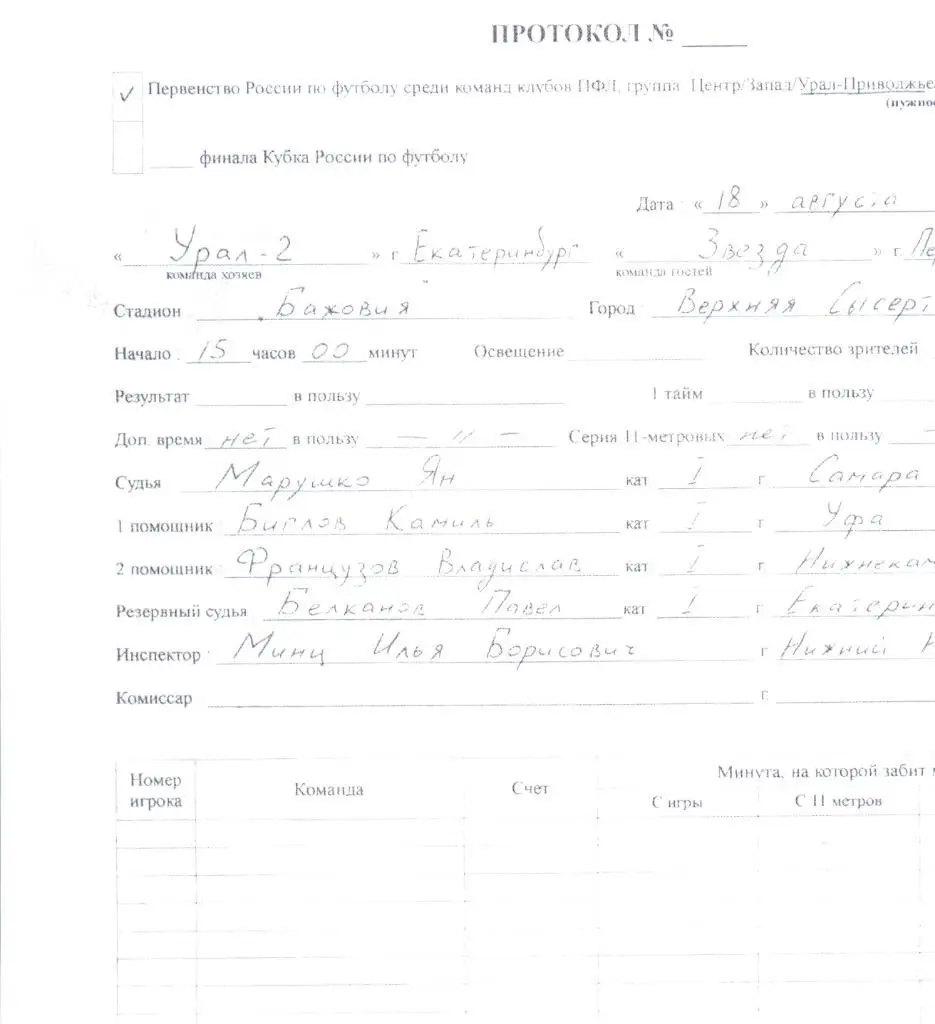 ПРОТОКОЛ № _____
✓ Первенство России по футболу среди команд клубов ПФЛ, группа Центр/Запад/Урал-Приволжье
(нужное
____ финала Кубка России по футболу
Дата « 18 » августа
« Урал-2 » г Екатеринбург « Звезда » г.
команда хозяев команда гостей
Стадион Бажовия Город: Верхняя Сысерт
Начало : 15 часов 00 минут Освещение ____ Количество зрителей
Результат ____ в пользу ____ 1 тайм ____ в пользу
Доп. время нет в пользу — 〃 — Серия 11-метровых нет в пользу —
Судья Марушко Ян кат I г Самара
1 помощник Биглов Камиль кат I г Уфа
2 помощник Французов Владислав кат I г Нижнекам
Резервный судья Белканов Павел кат I г Екатерин
Инспектор Минц Илья Борисович г Нижний
Комиссар ____ г.
Номер игрока Команда Счет Минута, на которой забит
С игры С 11 метров